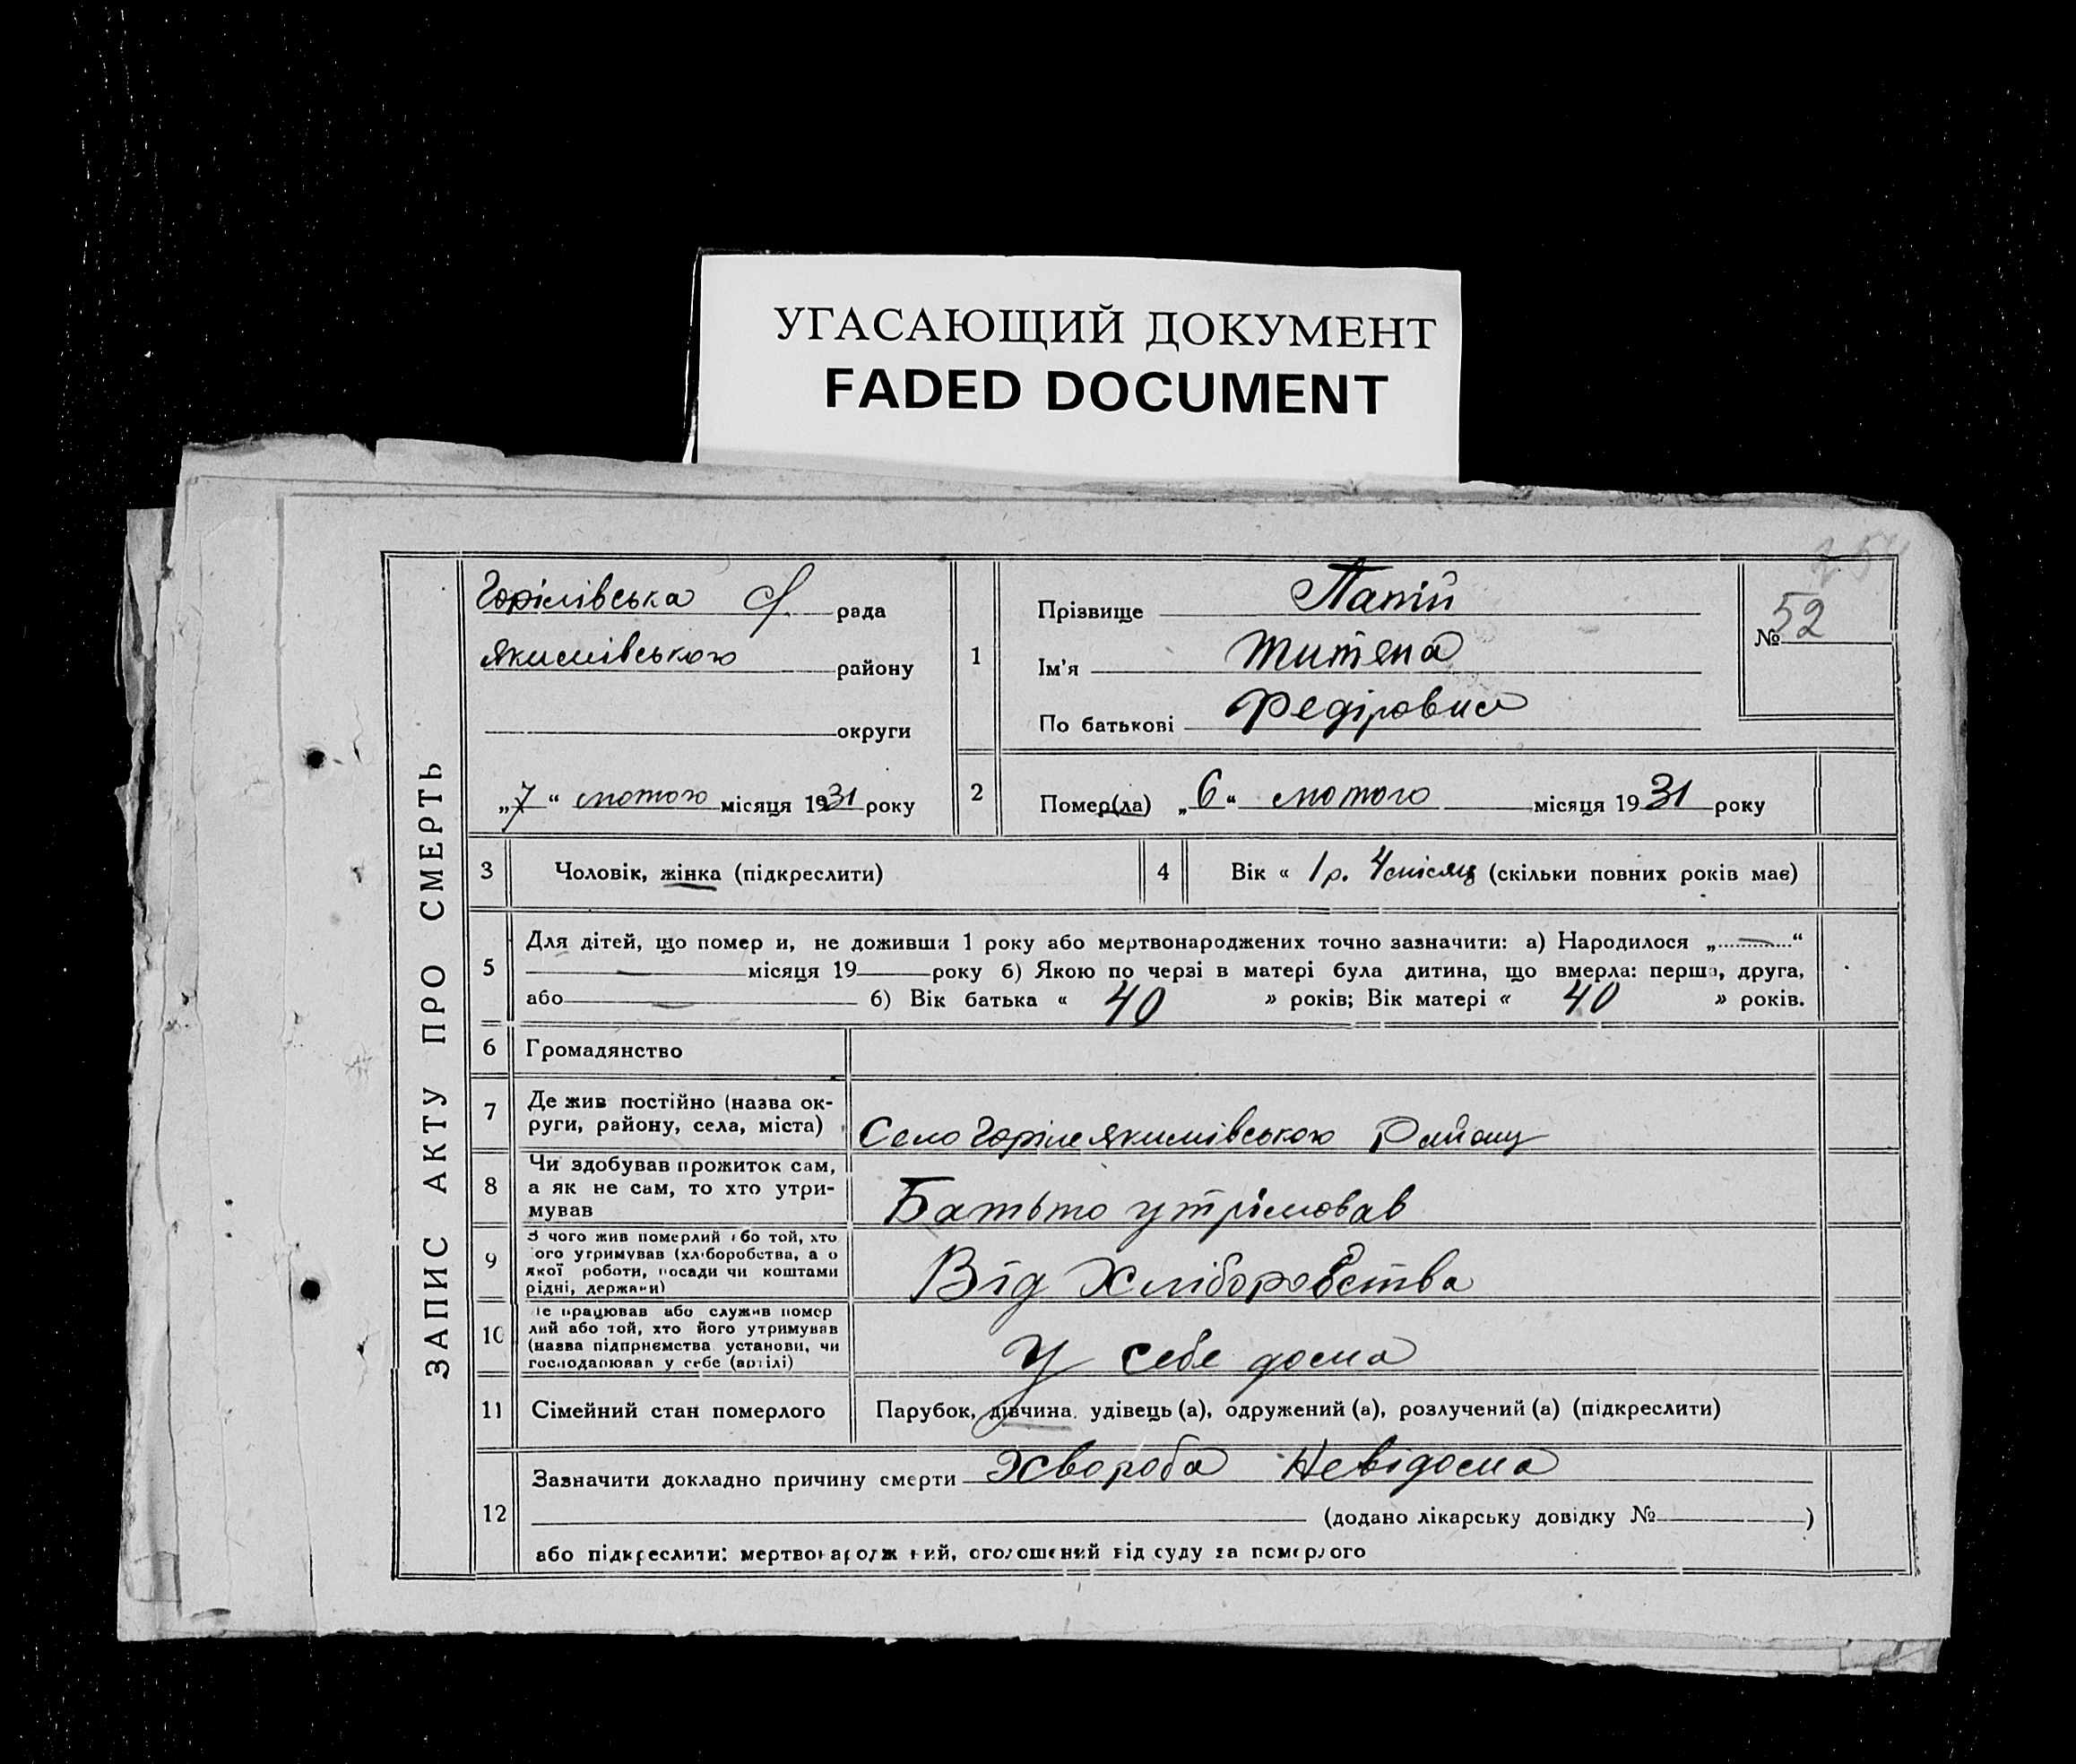 УГАСАЮЩИЙ ДОКУМЕНТ
FADED DOCUMENT
ЗАПИС АКТУ ПРО СМЕРТЬ
Горілівська рада
Якимівського району
округи
„7“ лютого місяця 1931 року
1
Прізвище Папій
Ім'я Титяна
По батькові Федіровна
№ 52
2
Помер(ла) „6“ лютого місяця 1931 року
3
Чоловік, жінка (підкреслити)
4
Вік « 1 р. 4 місяц (скільки повних років має)
5
Для дітей, що помер и, не доживши 1 року або мертвонароджених точно зазначити: а) Народилося „ “
місяця 19 року б) Якою по черзі в матері була дитина, що вмерла: перша, друга,
або б) Вік батька « 40 » років; Вік матері « 40 » років.
6
Громадянство
7
Де жив постійно (назва ок-
руги, району, села, міста)
Село Горіле Якимівського Району
8
Чи здобував прожиток сам,
а як не сам, то хто утри-
мував
Батьто утрімовав
9
З чого жив померлий або той, хто
його утримував (хліборобства, а о
якої роботи, посади чи коштами
рідні, держави)
Від Хліборобства
10
Де працював або служив помер
лий або той, хто його утримував
(назва підприємства установи, чи
господарював у себе (артілі)
У себе дома
11
Сімейний стан померлого
Парубок, дівчина, удівець (а), одружений (а), розлучений (а) (підкреслити)
12
Зазначити докладно причину смерти Хвороба Невідома
(додано лікарську довідку № )
або підкреслити: мертвонароджений, оголошений від суду за померлого